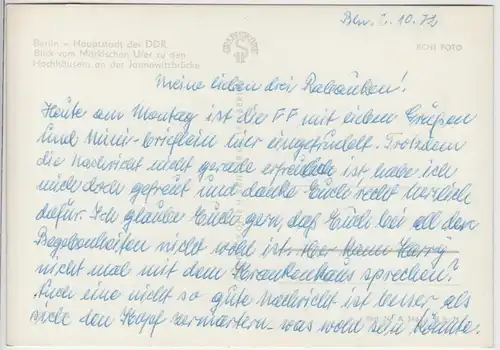 Bln. 2.10.72
Berlin – Hauptstadt der DDR
Blick vom Märkischen Ufer zu den
Hochhäusern an der Jannowitzbrücke
ECHT FOTO
Meine lieben drei Rabauken!
Heute am Montag ist die FF mit lieben Grüßen
und Mini-brieflein hier eingetrudelt. Trotzdem
die Nachricht nicht gerade erfreulich ist habe ich
mich doch gefreut und danke Euch recht herzlich
dafür. Ich glaube Euch gern, daß Euch bei all den
Begebenheiten nicht wohl ist. Aber kann Harry
nicht mal mit dem Krankenhaus sprechen?
Auch eine nicht so gute Nachricht ist besser als
sich den Kopf zermartern was wohl sein könnte.